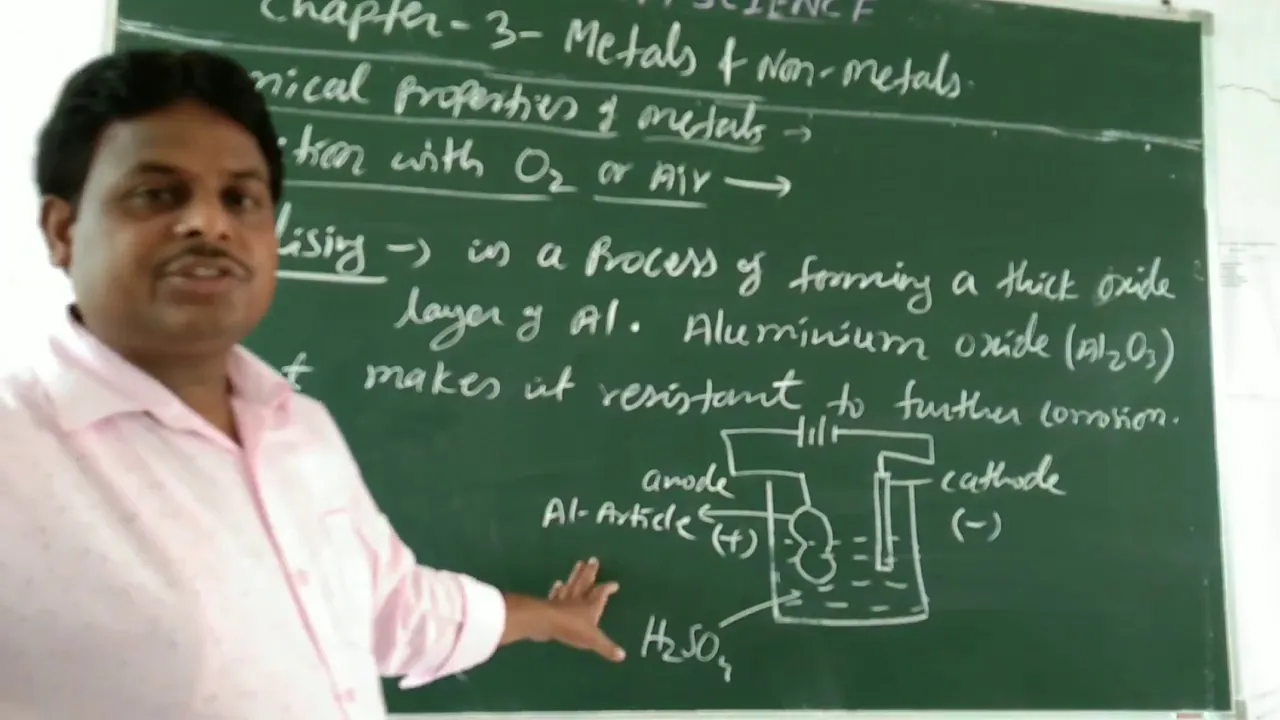 SCIENCE
Chapter - 3 - Metals & Non-metals.
mical Properties of metals →
tion with O2 or Air →
lising → is a Process of forming a thick oxide
layer of Al. Aluminium oxide (Al2O3)
makes it resistant to further corrosion.
anode
cathode
Al-Article
(+)
(-)
H2SO4